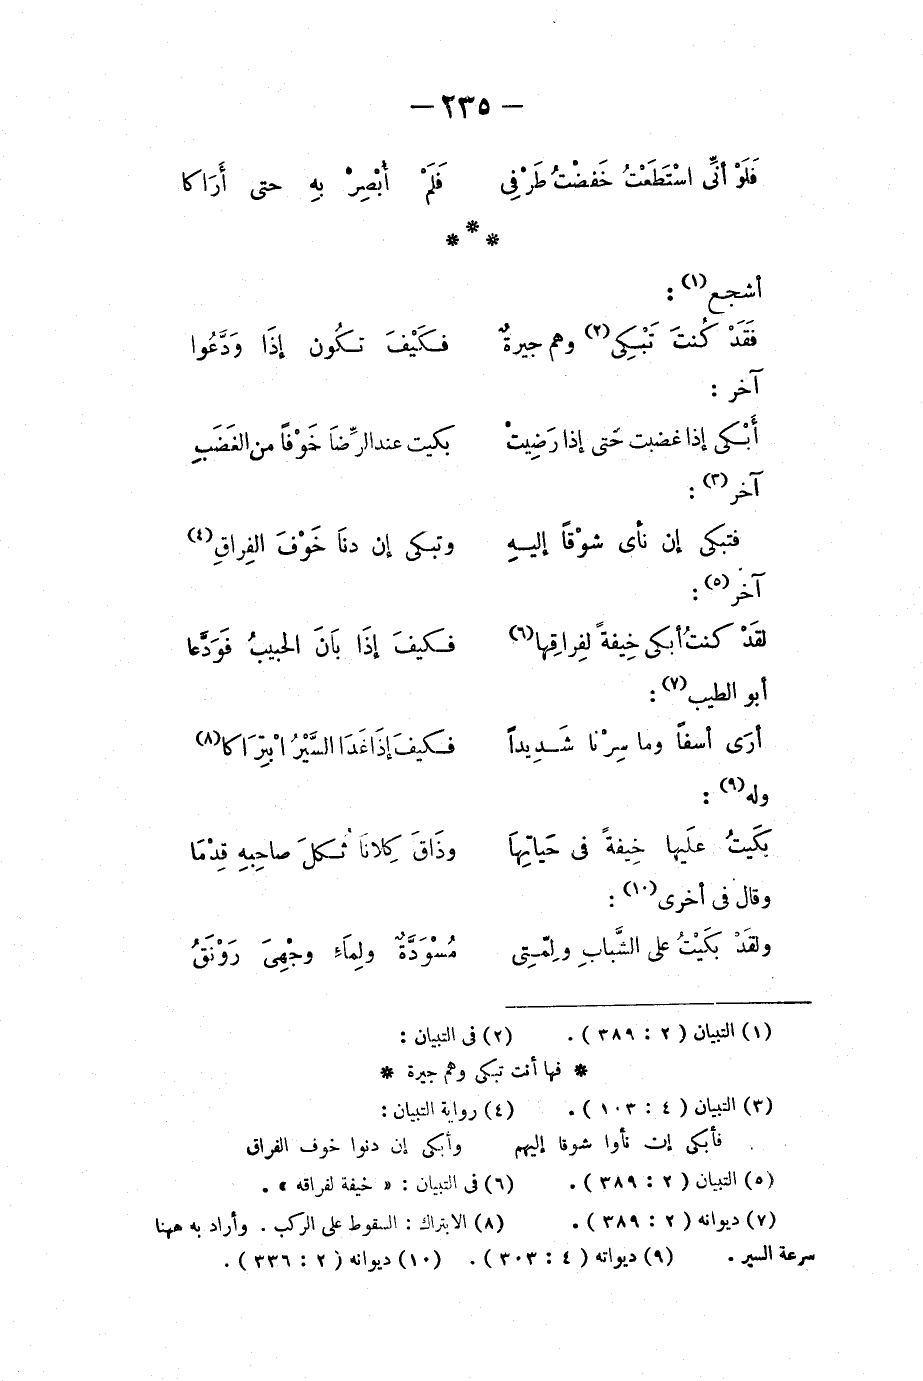 — ٢٣٥ —
فَلَوْ أنِّى اسْتَطَعْتُ خَفضْتُ طَرْفِى فَلَمْ أُبْصِرْ بِهِ حتى أَرَاكا
* * *
أشجع(١) :
فَقَدْ كُنتَ تَبْكِى(٢) وهم جيرةٌ فكَيْفَ تكُون إذَا وَدَّعُوا
آخر :
أَبْكى إذا غضبت حَتى إذا رَضِيتْ بكيت عند الرِّضَا خَوْفاً من الغَضَبِ
آخر(٣) :
فتبكى إن نأى شوْقاً إليهِ وتبكى إن دنَا خَوْفَ الفِراقِ(٤)
آخر(٥) :
لقَدْ كنتُ أبكى خِيفةً لفِراقِها(٦) فكيفَ إذَا بَانَ الحبيبُ فَوَدَّعا
أبو الطيب(٧) :
أرَى أسفاً وما سِرْنا شَديداً فكيفَ إذَا غَدَا السَّيْرُ ابْتِرَاكا(٨)
وله(٩) :
بَكَيتُ علَيها خِيفةً فى حَياتِها وذَاقَ كِلانَا ثُكلَ صاحِبهِ قِدْمَا
وقال فى أخرى(١٠) :
ولقَدْ بَكَيْتُ على الشَّبابِ ولِمّتِى مُسْوَدَّةٌ ولِمَاءِ وجْهِىَ رَوْنَقُ
(١) التبيان ( ٢ : ٣٨٩ ) . (٢) فى التبيان :
* فها أنت تبكى وهم جيرة *
(٣) التبيان ( ٤ : ١٠٣ ) . (٤) رواية التبيان :
فأبكى إن نأوا شوقا إليهم وأبكى إن دنوا خوف الفراق
(٥) التبيان ( ٢ : ٣٨٩ ) . (٦) فى التبيان : « خيفة لفراقه » .
(٧) ديوانه ( ٢ : ٣٨٩ ) . (٨) الابتراك : السقوط على الركب . وأراد به ههنا
سرعة السير . (٩) ديوانه ( ٤ : ٣٠٣ ) . (١٠) ديوانه ( ٢ : ٣٣٦ ) .